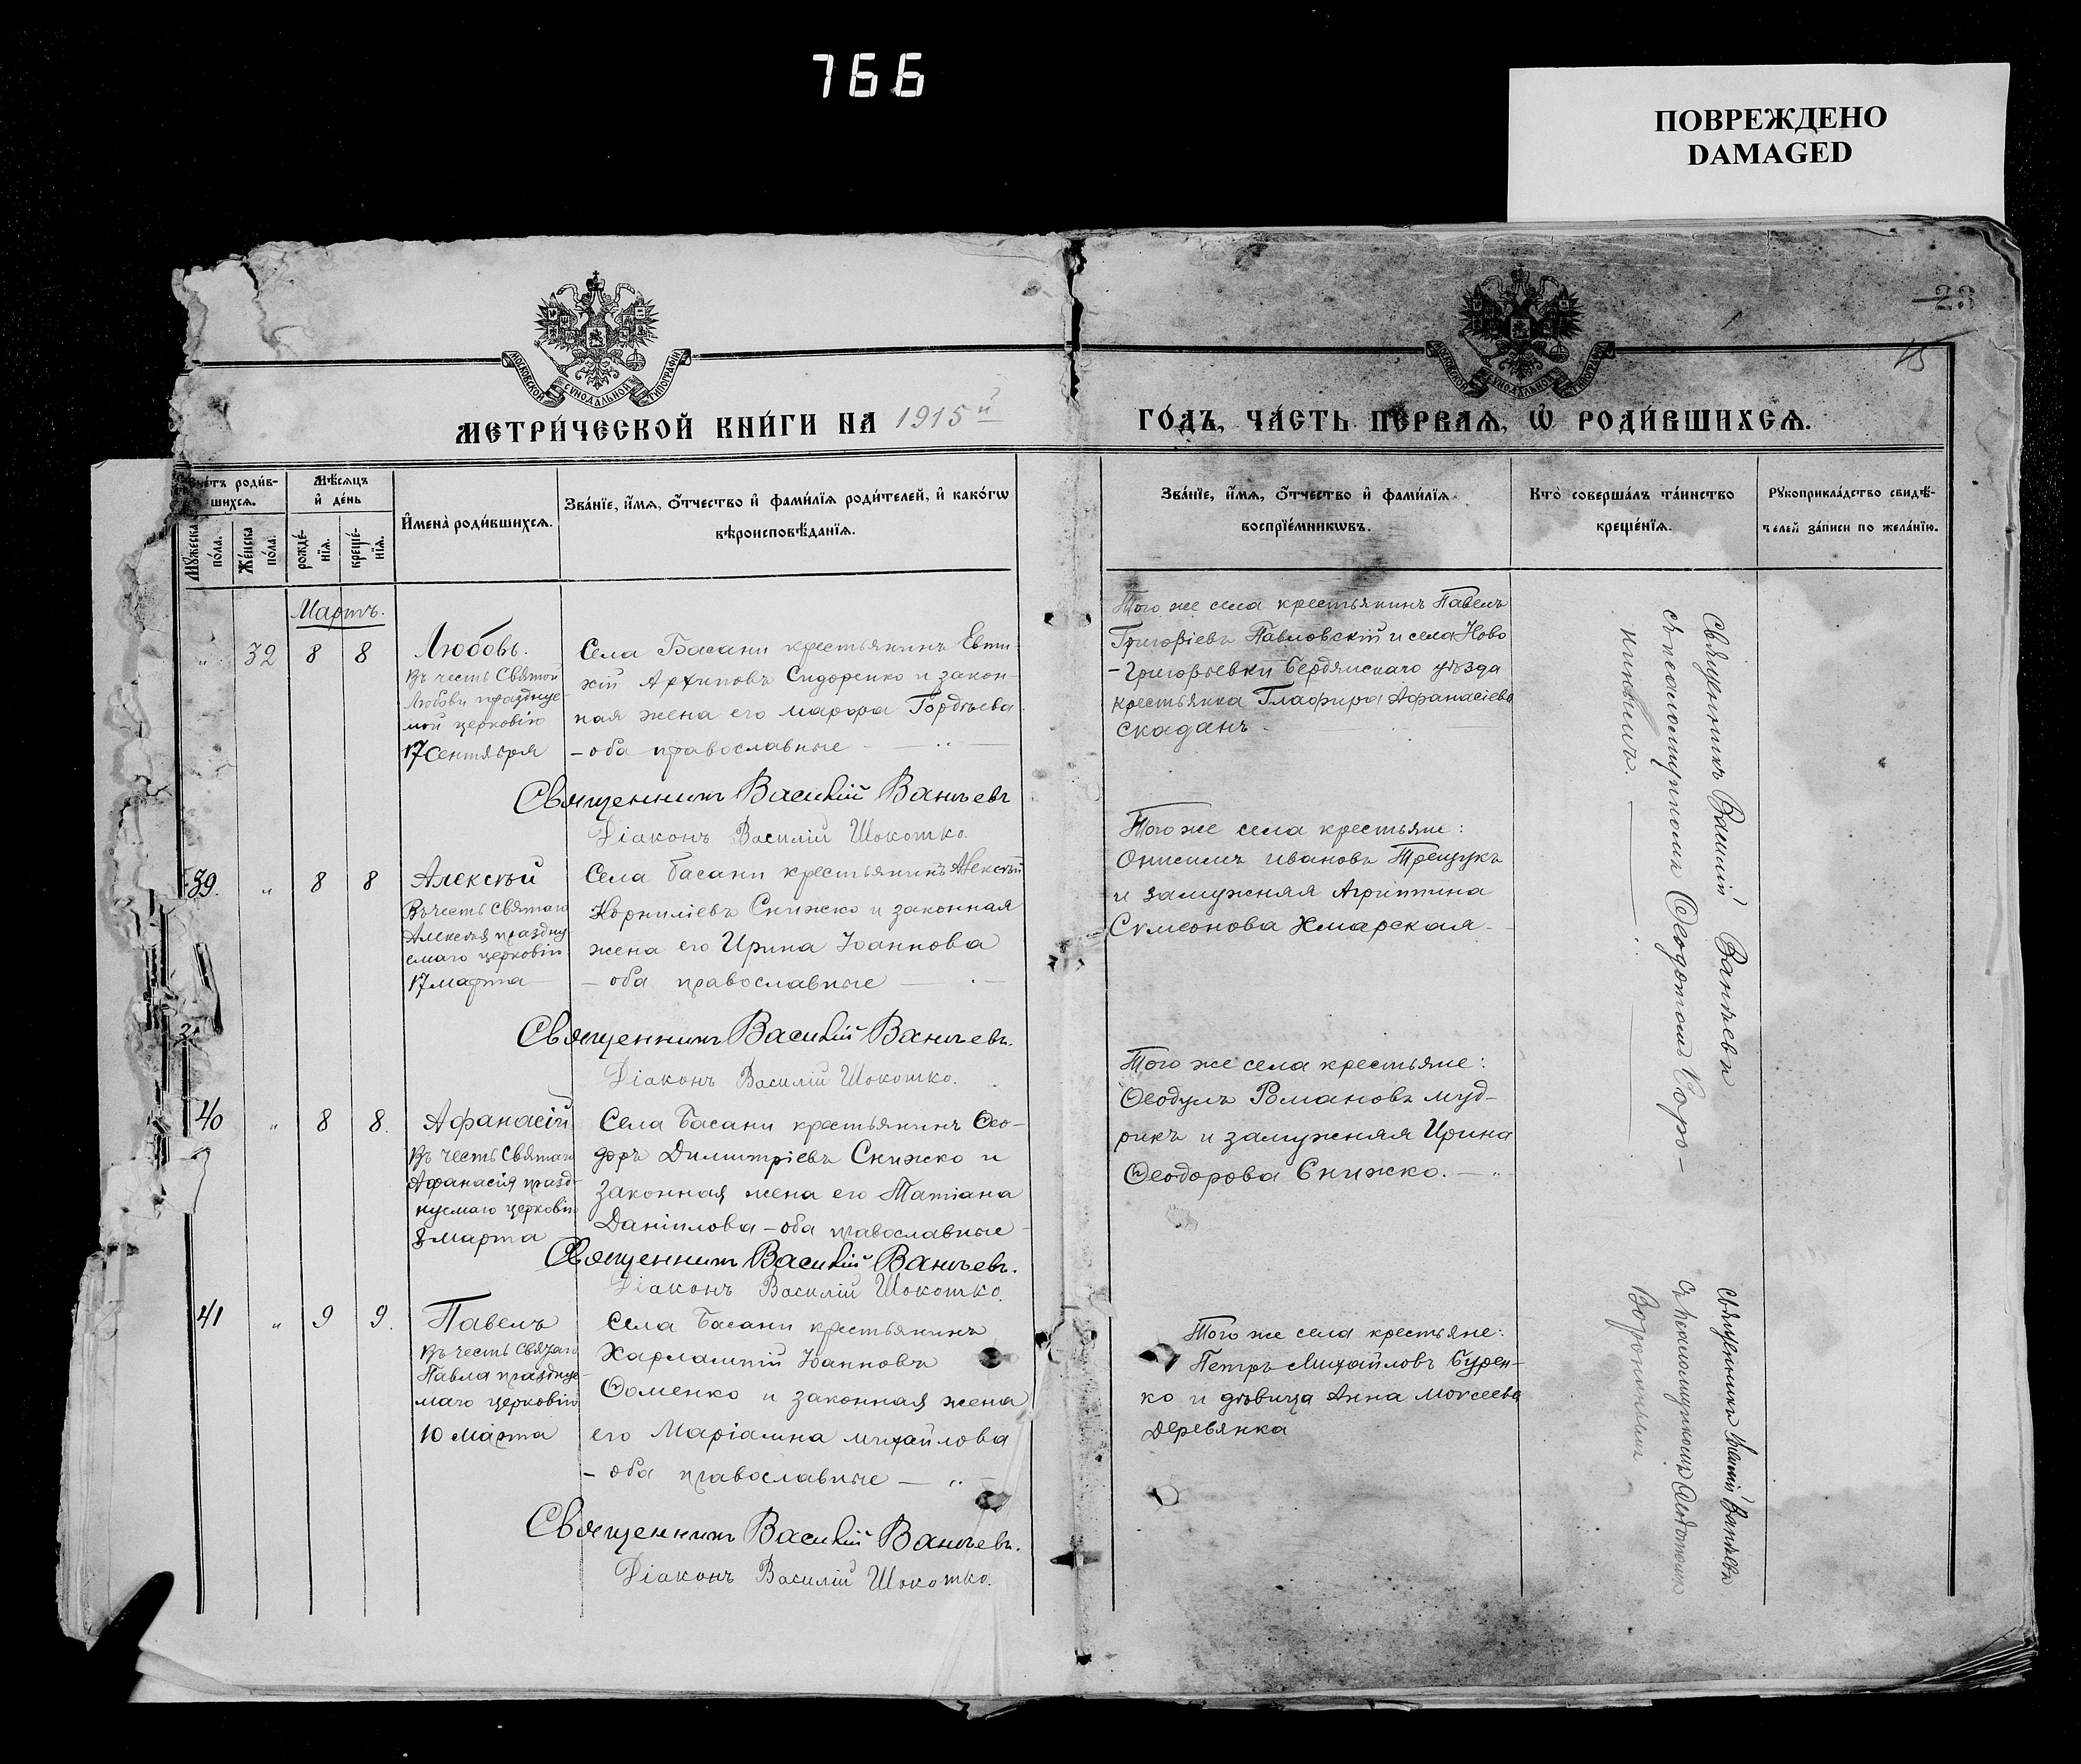 766
ПОВРЕЖДЕНО
DAMAGED
23
15
МОСКОВСКОЙ СѴНОДАЛЬНОЙ ТИПОГРАФІИ
МОСКОВСКОЙ СѴНОДАЛЬНОЙ ТИПОГРАФІИ
МЕТРИ́ЧЕСКОЙ КНИ́ГИ НА 1915й
ГО́ДЪ, ЧА́СТЬ ПЕ́РВАѦ, Ѽ РОДИ́ВШИХСѦ.
Счетъ роди́в-
шихсѧ.
Мꙋ́жеска
по́ла.
Же́нска
по́ла.
Мѣ́сѧцъ
и҆ де́нь
рожде́-
нїѧ.
креще́-
нїѧ.
И҆мена̀ роди́вшихсѧ.
Зва́нїе, и҆́мѧ, ѻ҆́тчество и҆ фами́лїѧ роди́телей, и҆ како́гѡ
вѣроисповѣ́данїѧ.
Зва́нїе, и҆́мѧ, ѻ҆́тчество и҆ фами́лїѧ
воспрїе́мникѡвъ.
Кто̀ соверша́лъ та́инство
креще́нїѧ.
Рꙋкоприкла́дство свидѣ́-
телей за́писи по жела́нїю.
Мартъ.
„ 32 8 8
Любовь.
Въ честь Святой
Любови праздную
мой церковію
17 Сентября
Села Басани крестьянинъ Евти-
хій Архиповъ Сидоренко и закон-
ная жена его Марѳа Гордѣева
– оба православные –
Священникъ Василій Ваньевъ
Діаконъ Василій Шокотко.
Того же села крестьянинъ Павелъ
Григоріевъ Павловскій и села Ново
-Григорьевки Бердянскаго уѣзда
крестьянка Глафира Аѳанасіева
Скаданъ.
39. „ 8 8
Алексѣй
Въ честь Святаго
Алексѣя праздну
емаго церковію
17 марта
Села Басани крестьянинъ Алексѣй
Корниліевъ Снижко и законная
жена его Ирина Іоаннова
– оба православные –
Священникъ Василій Ваньевъ.
Діаконъ Василій Шокотко.
Того же села крестьяне:
Онисимъ Ивановъ Трещукъ
и замужняя Агриппина
Сѵмеонова Хмарская
40 „ 8 8.
Аѳанасій
Въ честь Святаго
Аѳанасія празд-
нуемаго церковію
8 марта
Села Басани крестьянинъ Ѳео-
доръ Димитріевъ Снижко и
законная жена его Татіана
Даніилова – оба православные –
Священникъ Василій Ваньевъ.
Діаконъ Василій Шокотко.
Того же села крестьяне:
Ѳеодулъ Романовъ Муд-
рикъ и замужняя Ирина
Ѳеодорова Снижко.
41 „ 9 9.
Павелъ
Въ честь Святаго
Павла праздную-
маго церковію
10 Марта
Села Басани крестьянинъ
Харлампій Іоанновъ
Ѳоменко и законная жена
его Маріамна Михайлова
– оба православные –
Священникъ Василій Ваньевъ.
Діаконъ Василій Шокотко.
Того же села крестьяне:
Петръ Михайловъ Бурен-
ко и дѣвица Анна Моѵсеева
Деревянка
Священникъ Василій Ваньевъ
съ псаломщикомъ Ѳеодотомъ Воро-
нинымъ.
Священникъ Василій Ваньевъ
съ псаломщикомъ Ѳеодотомъ
Воронинымъ